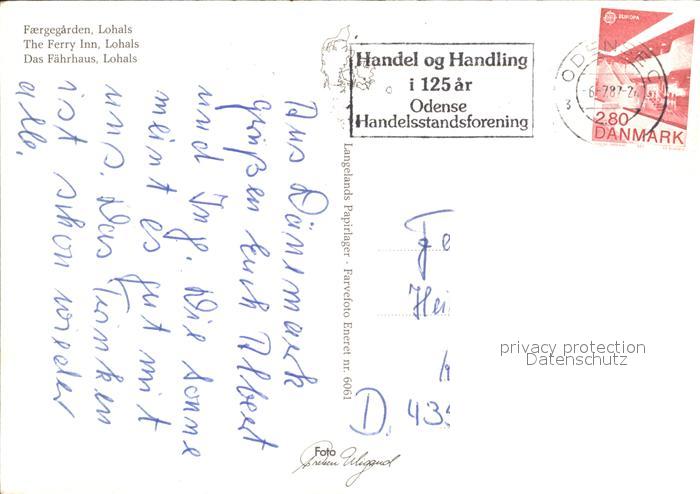 Færgegården, Lohals
The Ferry Inn, Lohals
Das Fährhaus, Lohals
Handel og Handling
i 125 år
Odense
Handelsstandsforening
ODENSE C
-6-787-2
3
EUROPA
2.80
DANMARK
Aus Dänemark
grüßen Euch Albert
und Ing. Die Sonne
meint es gut mit
uns. Das Trinken
ist schon wieder
alle.
Langelands Papirlager - Farvefoto Eneret nr. 6061
Hei
D. 43
privacy protection
Datenschutz
Foto